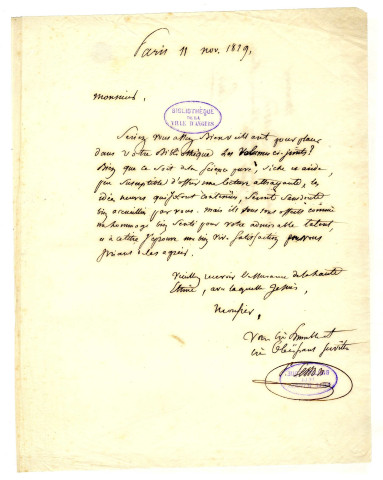 Paris 11 nov. 1819.
Monsieur,
BIBLIOTHÈQUE
DE LA
VILLE D'ANGERS
Seriez vous assez Bienveillant pour placer
dans votre Bibliothèque les volumes ci-joints?
Bien que ce soit de la Science pure, sèche et aride,
peu susceptible d'offrir une lecture attrayante, les
idées neuves qui sont contenues, seront sans doute
bien accueillies par vous. mais ils vous sont offerts comme
un hommage bien senti pour votre admirable talent,
et à ce titre j'éprouve une bien vive satisfaction
priant de les agréer.
Veuillez recevoir l'assurance de la haute
Estime, avec laquelle je suis,
Monsieur,
Votre très humble et
très obéissant serviteur